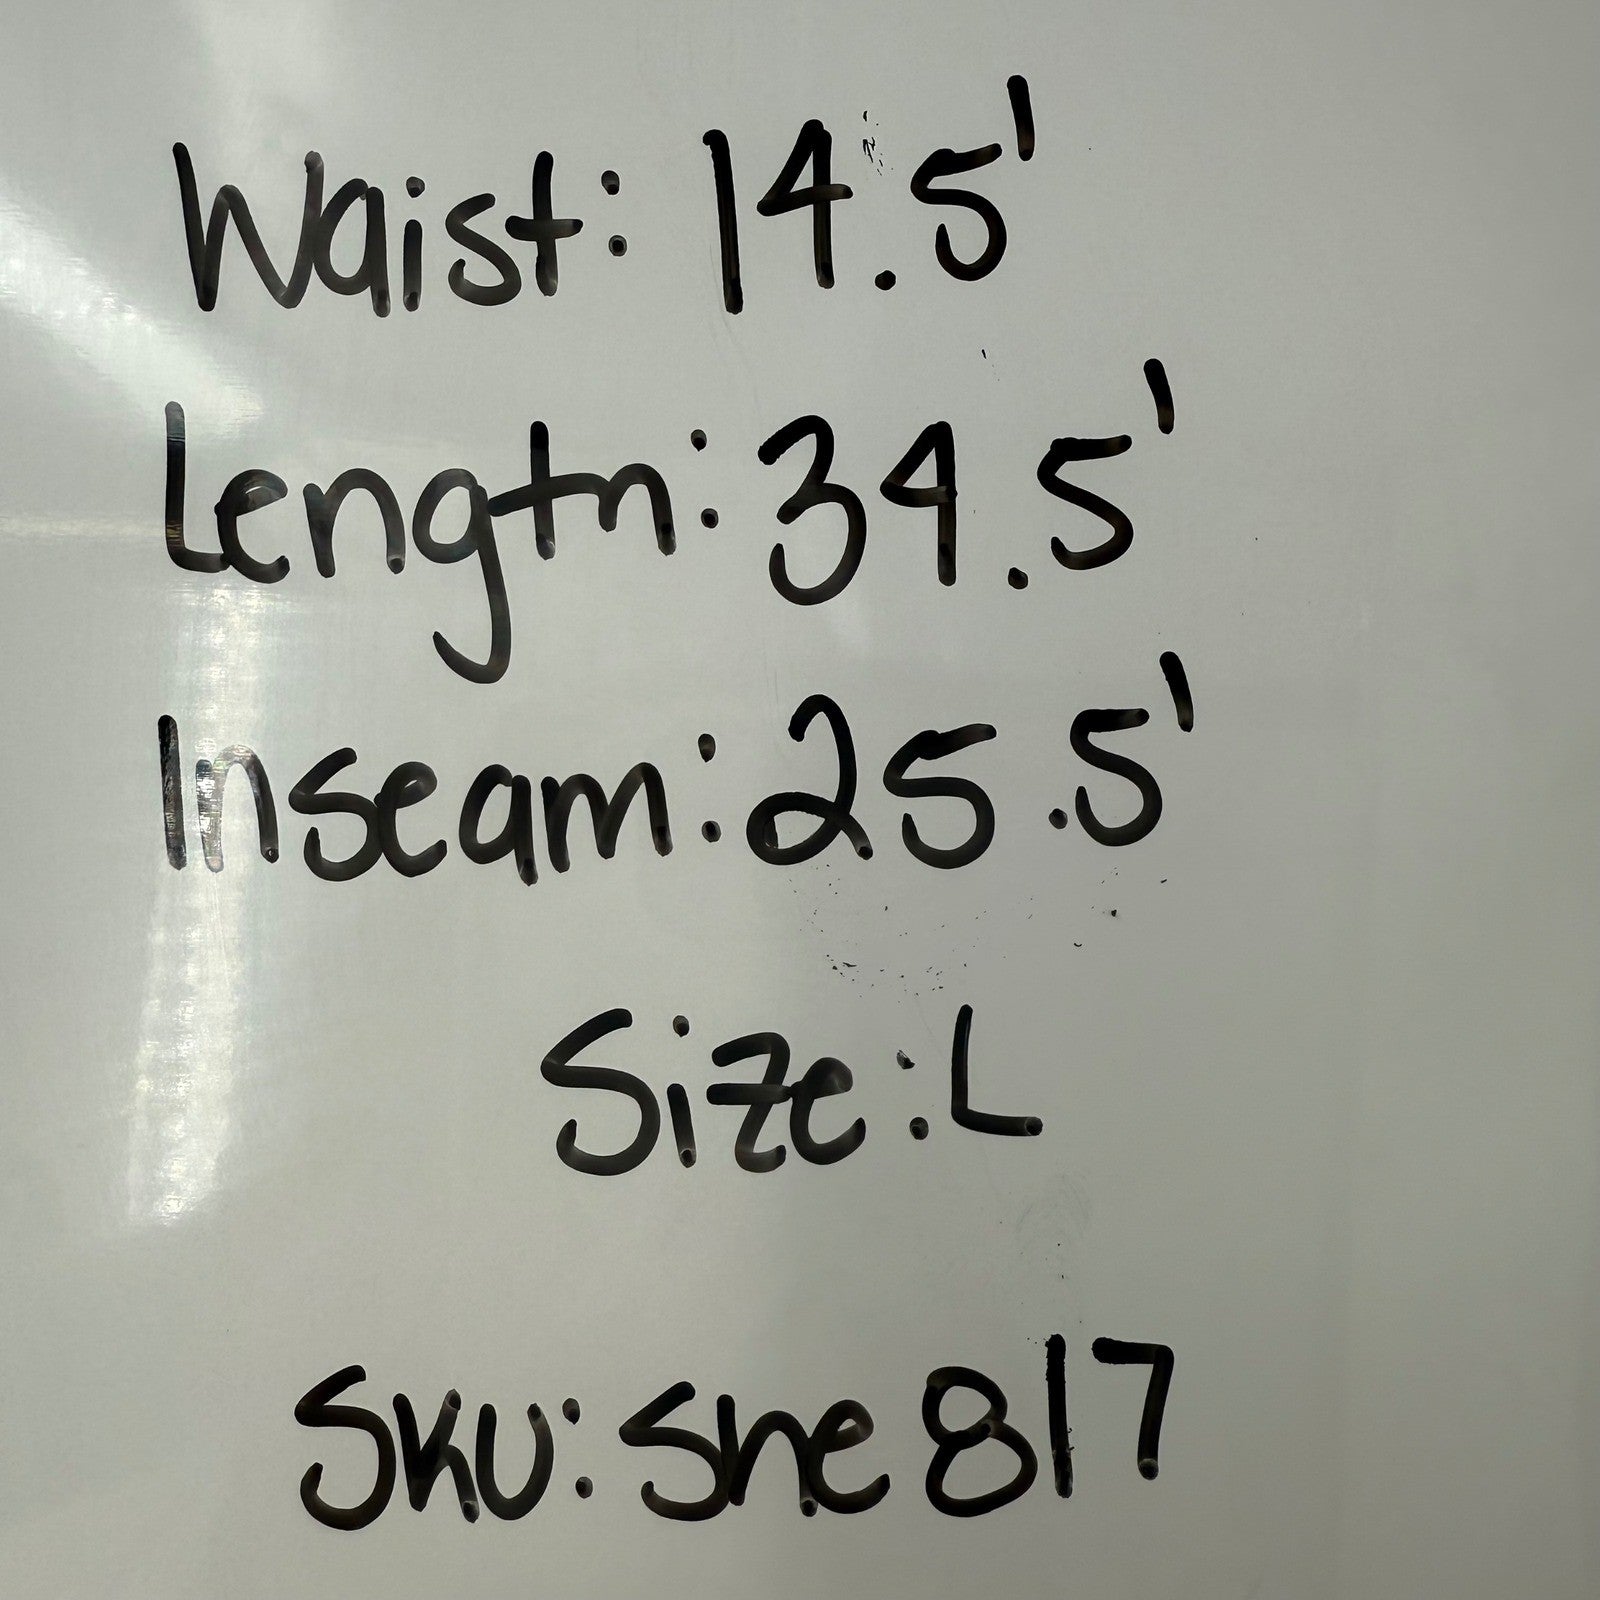 Waist: 14.5'
Length: 34.5'
Inseam: 25.5'
Size: L
Sku: She817